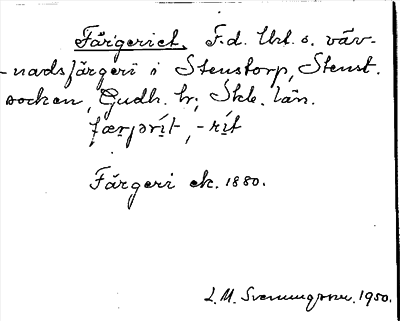 Färgeriet, F.d. lht. s. väv-
-nadsfärgeri i Stenstorp, Stenst.
socken, Gudh. hr, Skbg. län.
færjərít, -rit
Färgeri ek. 1880.
L.M. Svenungsson. 1950.